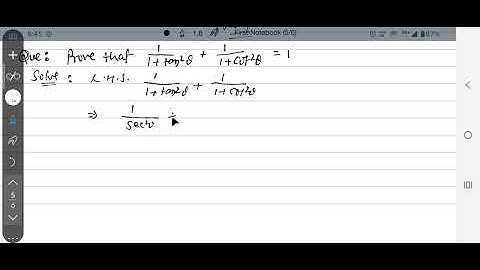 6:45 1.8 First Notebook (5/6) 87%
Que: Prove that 1/(1+tan²θ) + 1/(1+cot²θ) = 1
Solve: L.H.S. 1/(1+tan²θ) + 1/(1+cot²θ)
⇒ 1/sec²θ
5
6